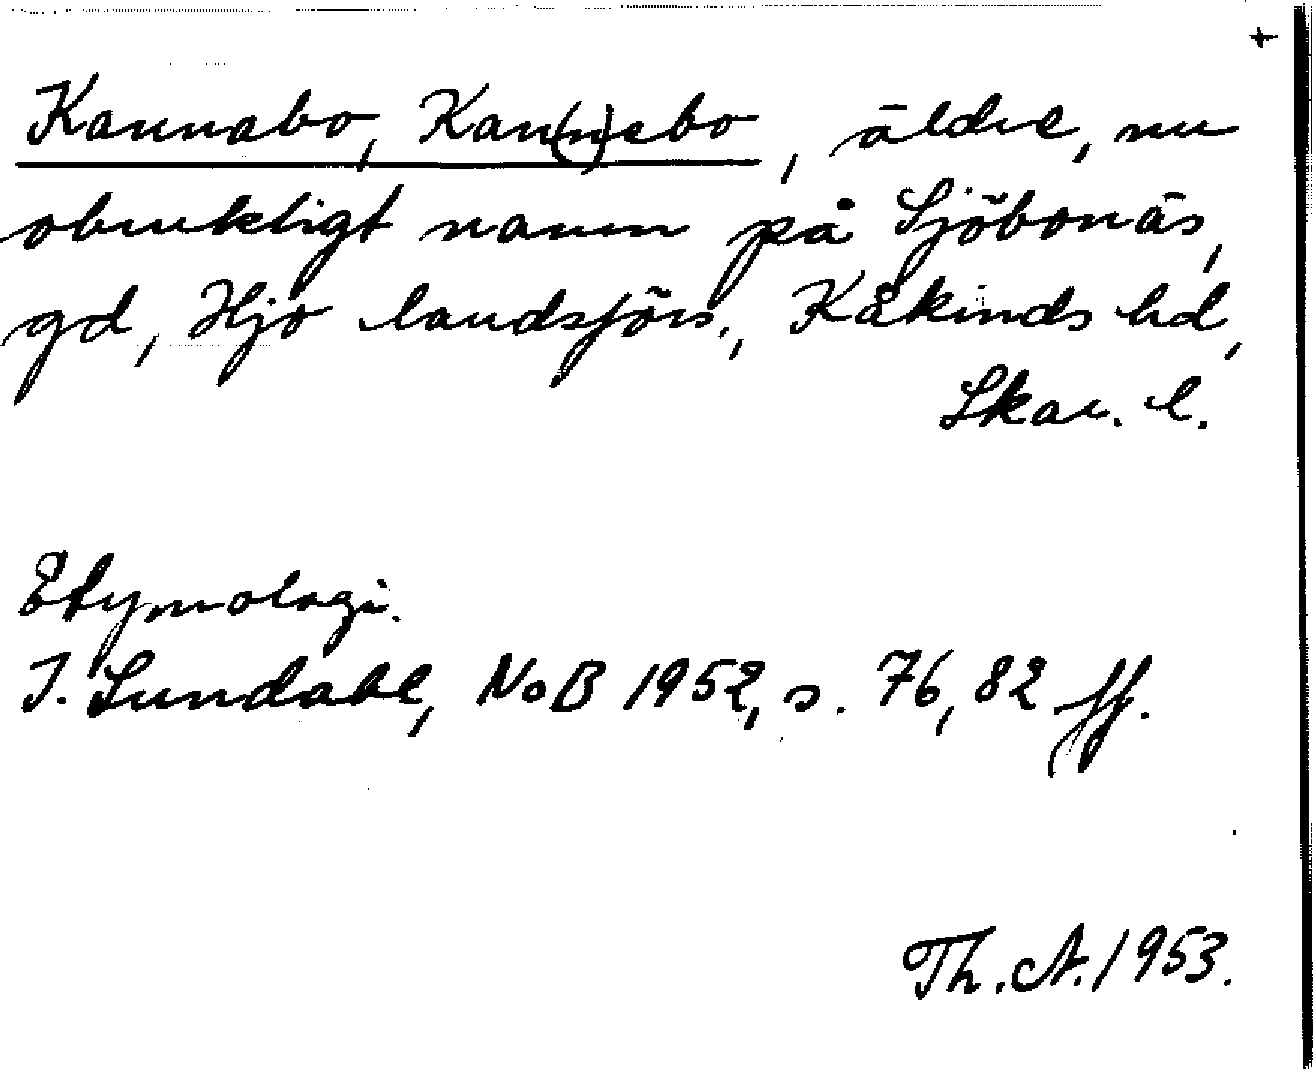 +
Kannabo, Kan(n)ebo, äldre, nu
obrukligt namn på Sjöbonäs,
gd, Hjo landsförs., Kåkinds hd,
Skar. l.
Etymologi.
I. Lundahl, NoB 1952, s. 76, 82 ff.
Th. A. 1953.